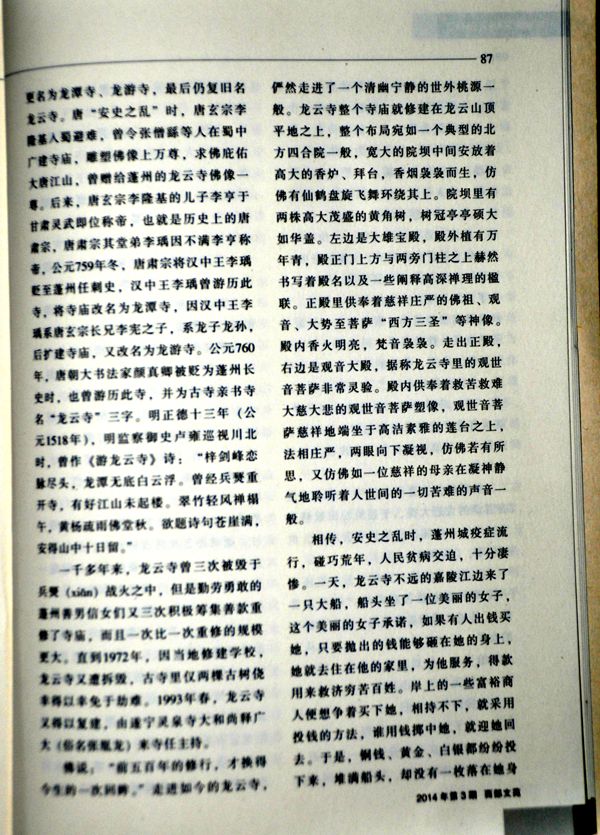 87
更名为龙潭寺、龙游寺，最后仍复旧名
龙云寺。唐“安史之乱”时，唐玄宗李
隆基入蜀避难，曾令张僧繇等人在蜀中
广建寺庙，雕塑佛像上万尊，求佛庇佑
大唐江山，曾赠给蓬州的龙云寺佛像一
尊。后来，唐玄宗李隆基的儿子李亨于
甘肃灵武即位称帝，也就是历史上的唐
肃宗，唐肃宗其堂弟李瑀因不满李亨称
帝，公元759年冬，唐肃宗将汉中王李瑀
贬至蓬州任刺史，汉中王李瑀曾游历此
寺，将寺庙改名为龙潭寺，因汉中王李
瑀系唐玄宗长兄李宪之子，系龙子龙孙，
后扩建寺庙，又改名为龙游寺。公元760
年，唐朝大书法家颜真卿被贬为蓬州长
史时，也曾游历此寺，并为古寺亲书寺
名“龙云寺”三字。明正德十三年（公
元1518年），明监察御史卢雍巡视川北
时，曾作《游龙云寺》诗：“梓剑峰峦
脉尽头，龙潭无底白云浮。曾经兵燹重
开寺，有好江山未起楼。翠竹轻风禅榻
午，黄杨疏雨佛堂秋。欲题诗句苍崖满，
安得山中十日留。”
一千多年来，龙云寺曾三次被毁于
兵燹（xiǎn）战火之中，但是勤劳勇敢的
蓬州善男信女们又三次积极筹集善款重
修了寺庙，而且一次比一次重修的规模
更大。直到1972年，因当地修建学校，
龙云寺又遭拆毁，古寺里仅两棵古树侥
幸得以幸免于劫难。1993年春，龙云寺
又得以复建，由遂宁灵泉寺大和尚释广
大（俗名张胤龙）来寺任主持。
佛说：“前五百年的修行，才换得
今生的一次回眸。”走进如今的龙云寺，
俨然走进了一个清幽宁静的世外桃源一
般。龙云寺整个寺庙就修建在龙云山顶
平地之上，整个布局宛如一个典型的北
方四合院一般，宽大的院坝中间安放着
高大的香炉、拜台，香烟袅袅而生，仿
佛有仙鹤盘旋飞舞环绕其上。院坝里有
两株高大茂盛的黄角树，树冠亭亭硕大
如华盖。左边是大雄宝殿，殿外植有万
年青，殿正门上方与两旁门柱之上赫然
书写着殿名以及一些阐释高深禅理的楹
联。正殿里供奉着慈祥庄严的佛祖、观
音、大势至菩萨“西方三圣”等神像。
殿内香火明亮，梵音袅袅。走出正殿，
右边是观音大殿，据称龙云寺里的观世
音菩萨非常灵验。殿内供奉着救苦救难
大慈大悲的观世音菩萨塑像，观世音菩
萨慈祥地端坐于高洁素雅的莲台之上，
法相庄严，两眼向下凝视，仿佛若有所
思，又仿佛如一位慈祥的母亲在凝神静
气地聆听着人世间的一切苦难的声音一
般。
相传，安史之乱时，蓬州城疫症流
行，碰巧荒年，人民贫病交迫，十分凄
惨。一天，龙云寺不远的嘉陵江边来了
一只大船，船头坐了一位美丽的女子，
这个美丽的女子承诺，如果有人出钱买
她，只要抛出的钱能够砸在她的身上，
她就去住在他的家里，为他服务，得款
用来救济穷苦百姓。岸上的一些富裕商
人便想争着买下她，相持不下，就采用
投钱的方法，谁用钱掷中她，就迎她回
去。于是，铜钱、黄金、白银都纷纷投
下来，堆满船头，却没有一枚落在她身
2014年第3期 南部文苑